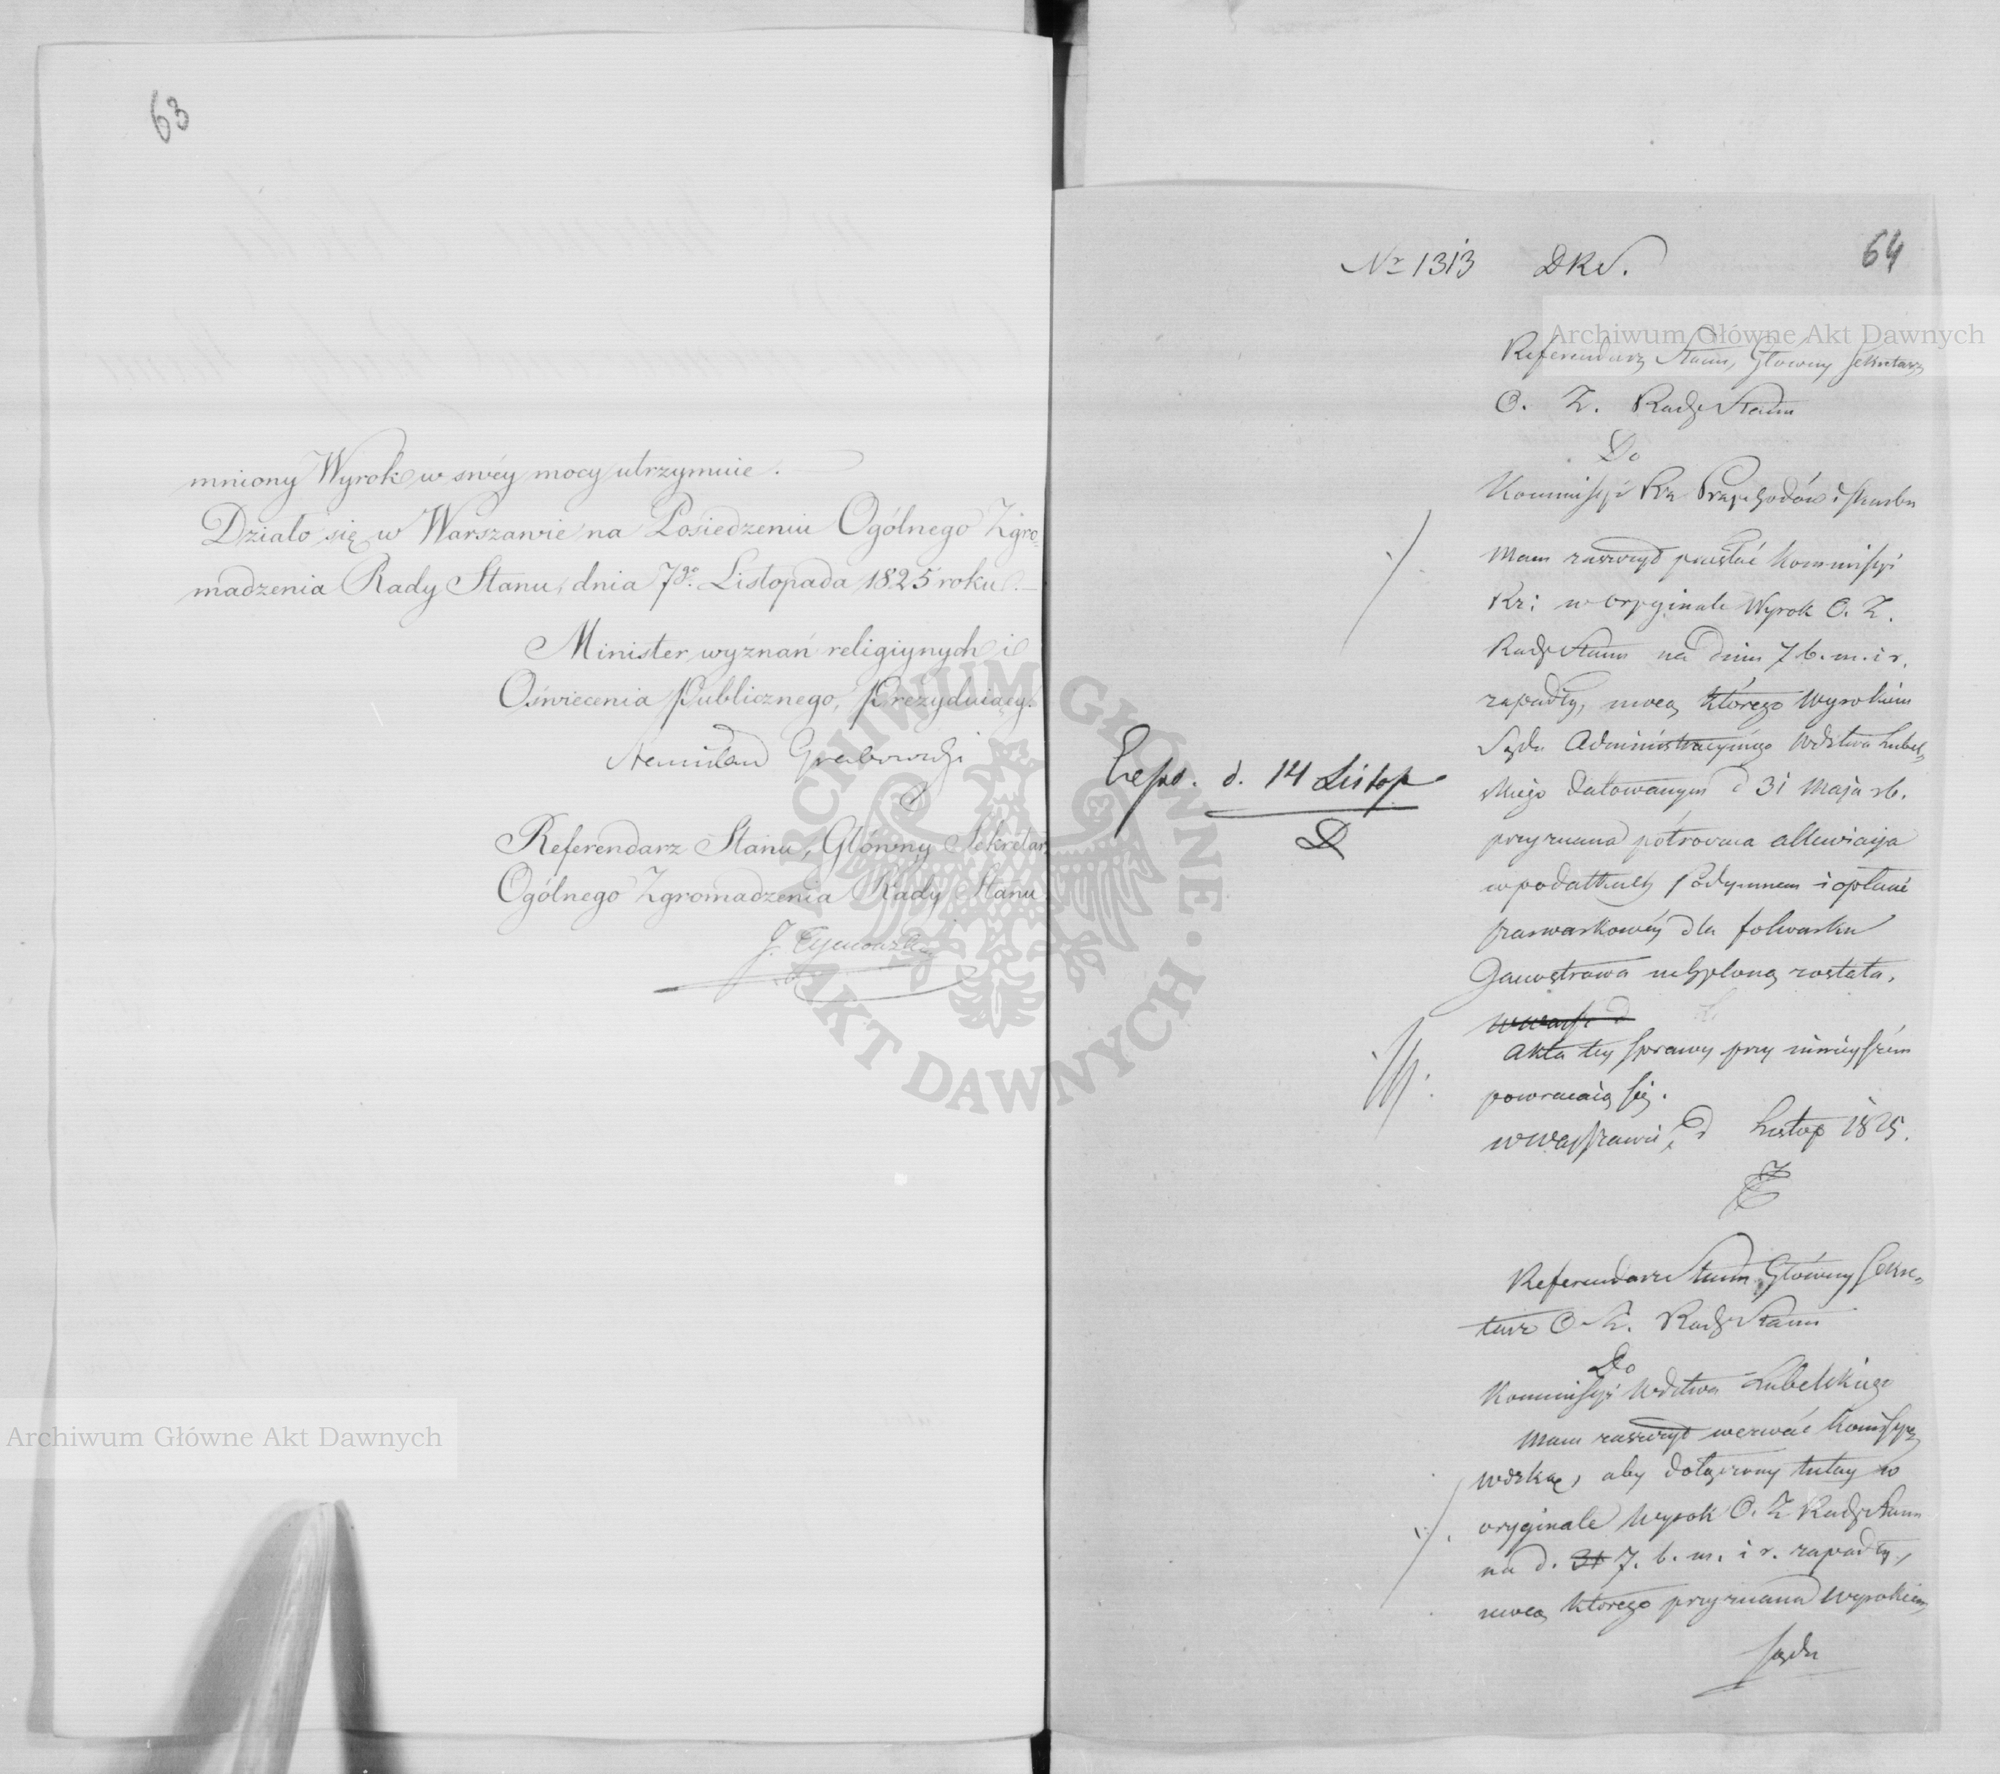 63
mniony Wyrok w swéy mocy utrzymuie.
Działo się w Warszawie na Posiedzeniu Ogólnego Zgro-
madzenia Rady Stanu, dnia 7go Listopada 1825 roku.
Minister wyznań religiynych i
Oświecenia Publicznego, Prezyduiący.
Stanisław Grabowski
Referendarz Stanu, Główny Sekretarz
Ogólnego Zgromadzenia Rady Stanu
J. Tymowski
Archiwum Główne Akt Dawnych
ARCHIWUM GŁÓWNE AKT DAWNYCH
64
Nr 1313 DRS.
Archiwum Główne Akt Dawnych
Referendarz Stanu, Głowny Sekretarz
O. Z. Rady Stanu
Do
Kommissyi Rz Przychodów i Skarbu
Mam zaszczyt przesłać Kommissyi
Rz: w oryginale Wyrok O. Z.
Rady Stanu na dniu 7 b. m. i r.
zapadły, mocą którego wyrokiem
Sądu Administracyinego Wdztwa Lubel-
skiego datowanym d 31 Maja rb.
przyznana allewiacya
w podatkach Podymnem i opłacie
szarwarkowéy dla folwarku
uchyloną została.
Exped. d. 14 Listop
Akta tey sprawy przy ninieyszém
powracaią się.
w Warszawie, d Listop 1825.
Referendarz Stanu Główny Sekre-
tarz O. Z. Rady Stanu
Do
Kommissyi Wdztwa Lubelskiego
Mam zaszczyt wezwać Kommissyą
Wdzką, aby dołączony tutay w
oryginale Wyrok O. Z Rady Stanu
na d. 31 7. b. m. i r. zapadły,
mocą którego przyznana wyrokiem
Sądu